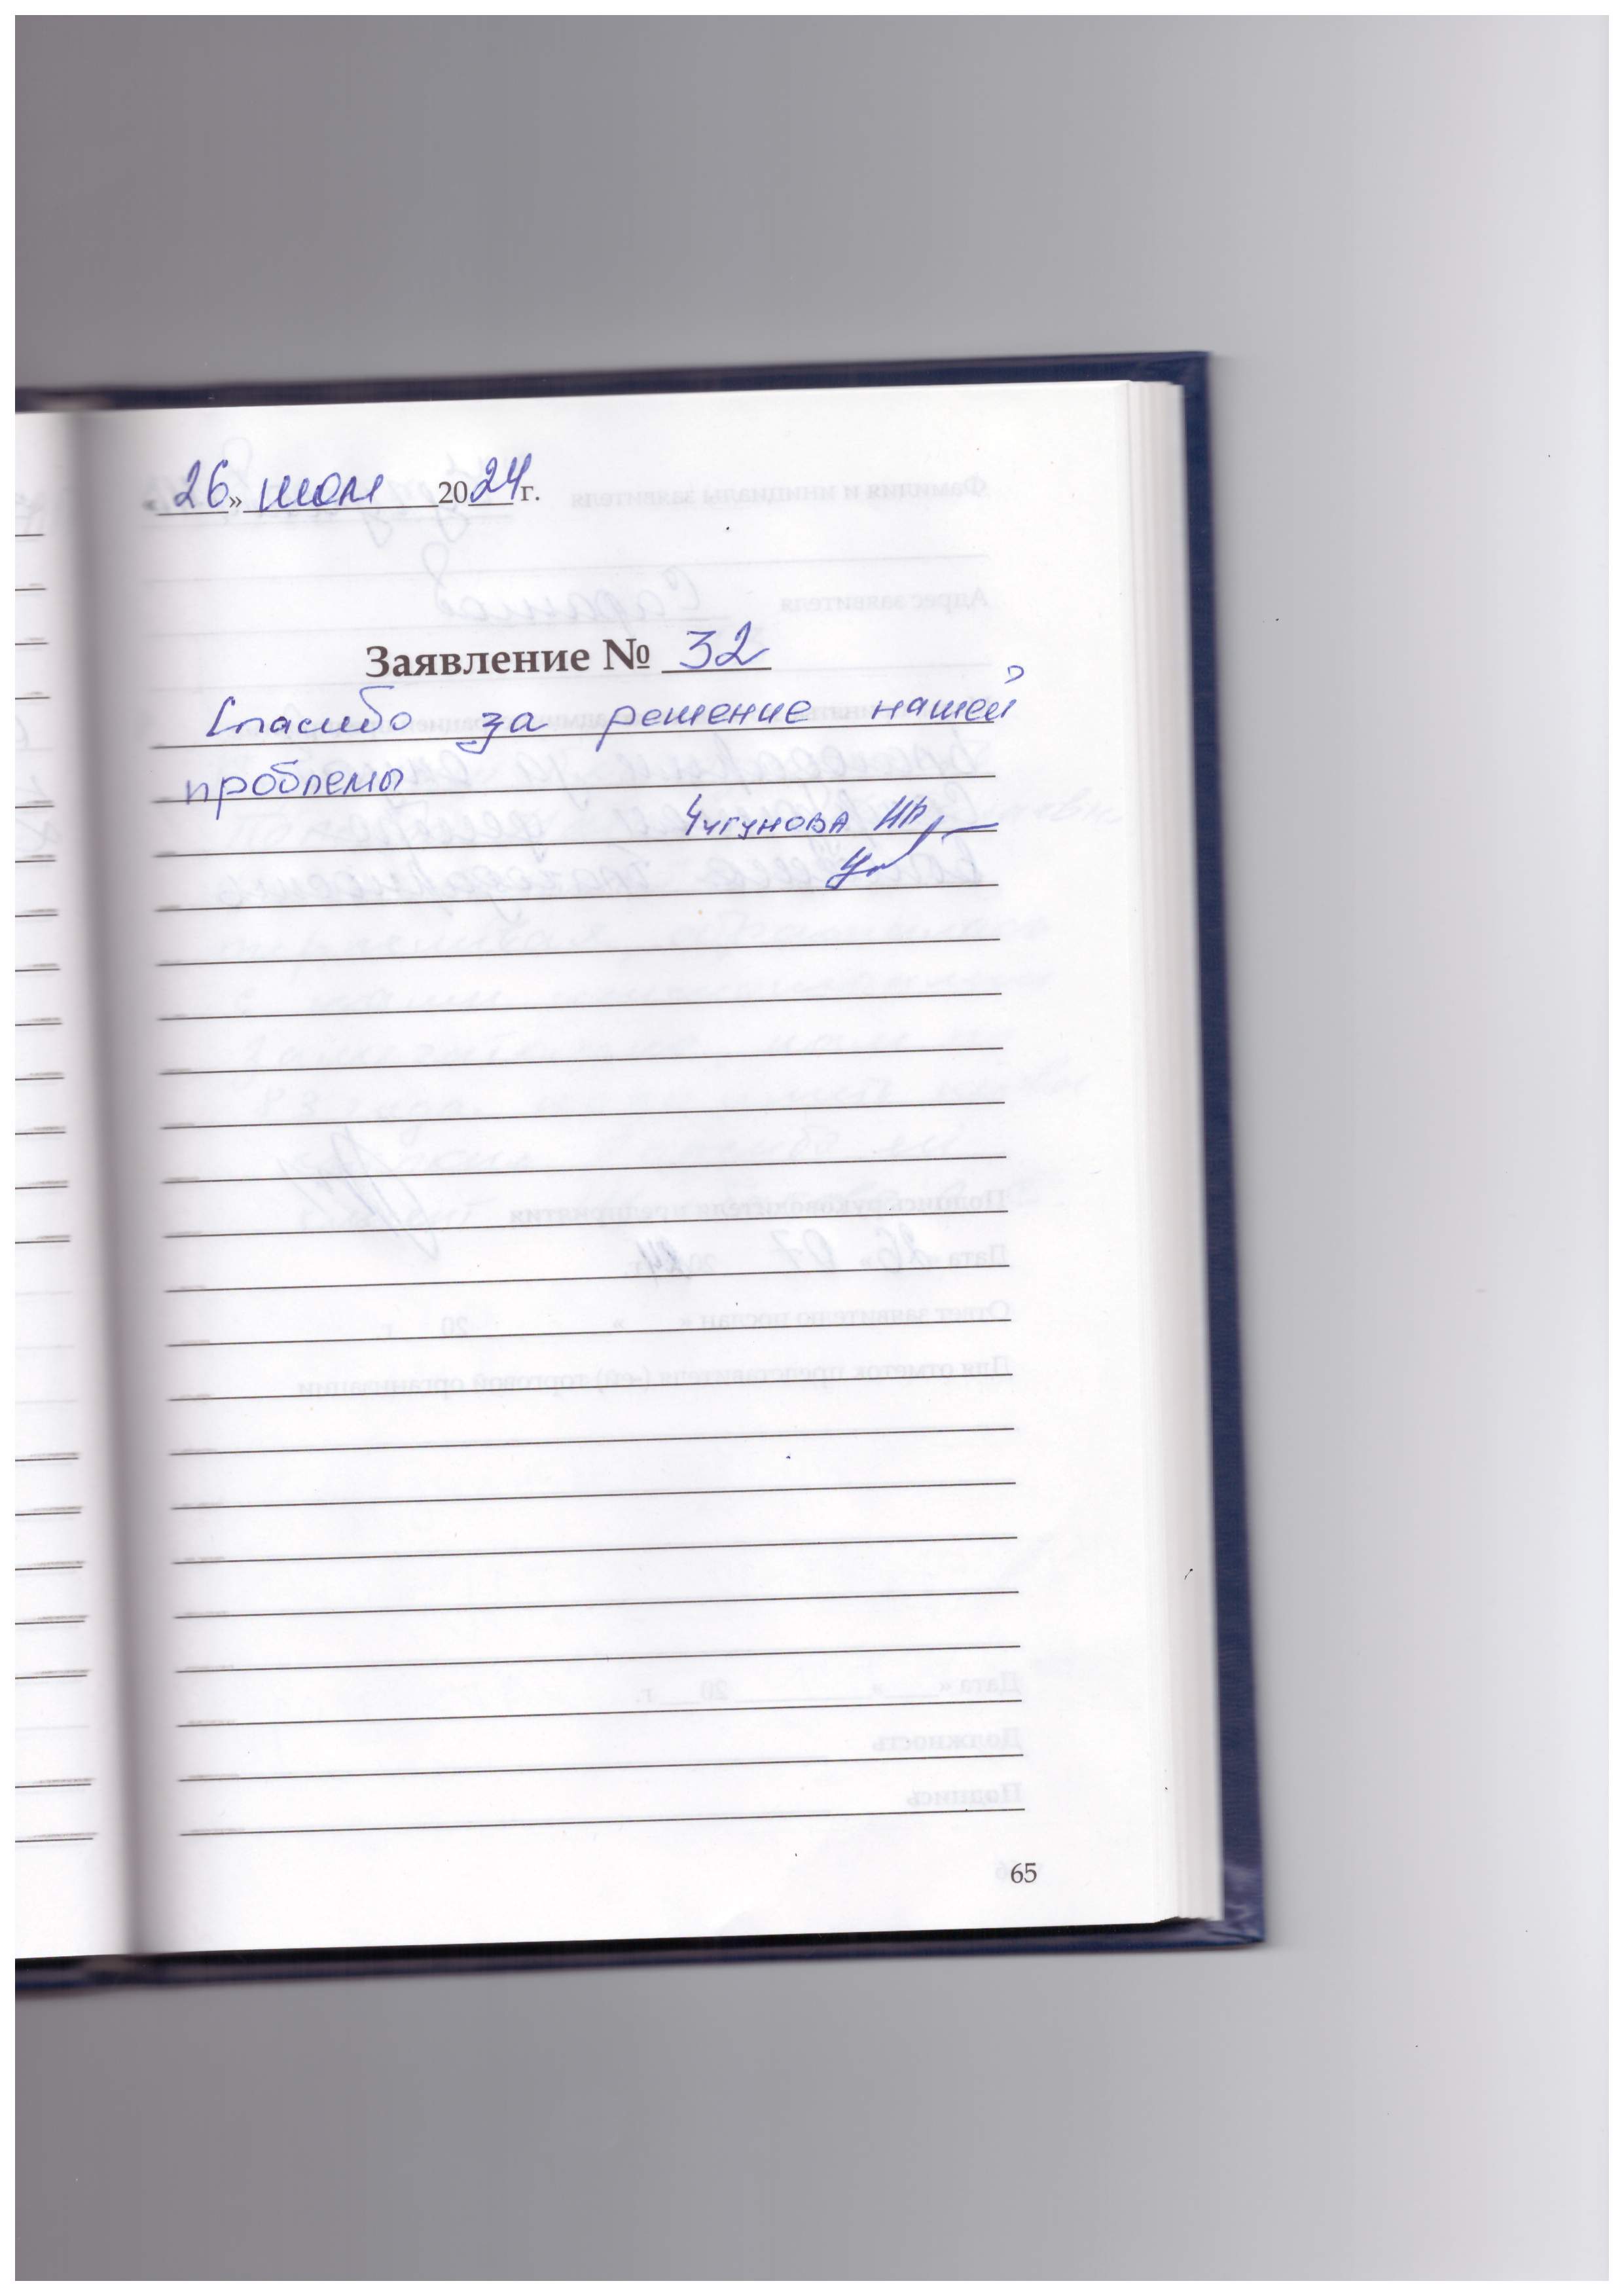 «26» июля 2024 г.
Заявление № 32
Спасибо за решение нашей
проблемы
Чугунова
65